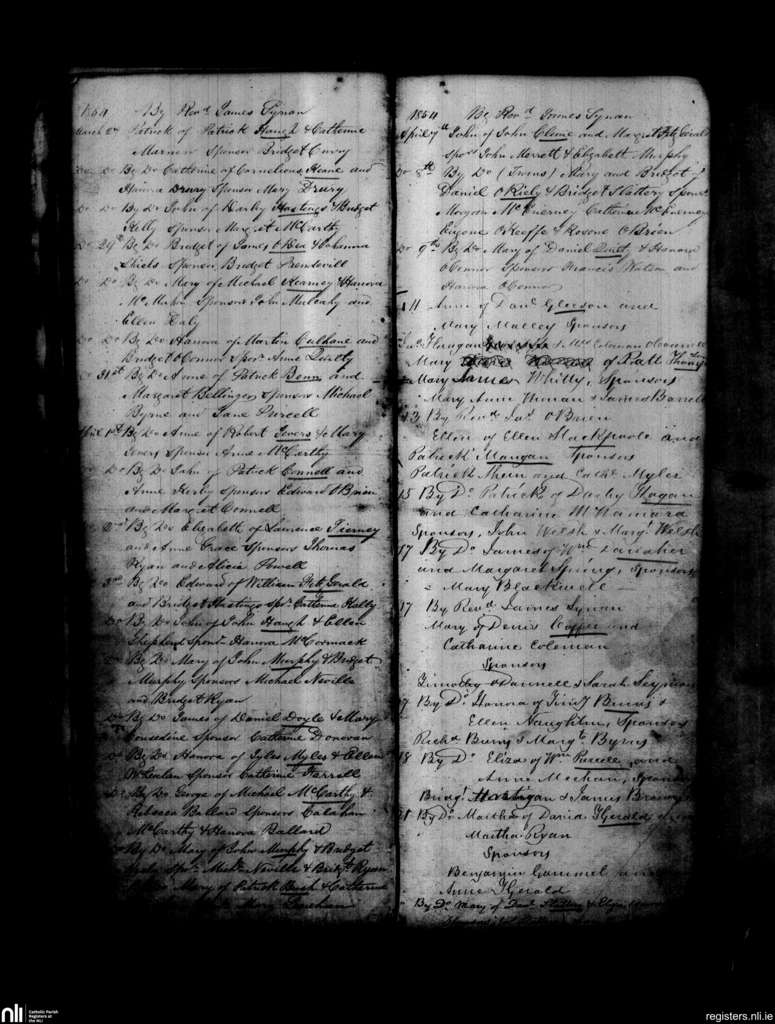 1854 By Revd James Synan
March 24 Patrick of Patrick Haugh & Catherine
Marnem Sponsor Bridget Curry
Do Do By Do Catherine of Cornelious Keane and
Hanora Drury Sponsor Mary Drury
Do Do By Do John of Darby Hastings & Bridget
Kelly Sponsor Margret McCarthy
Do 29th By Do Bridget of James O'Dea & Johanna
Shiels Sponsor Bridget Prendevill
Do Do By Do Mary of Michael Kearney & Hanora
McMahon Sponsors John Mulcahy and
Ellen Daly
Do Do By Do Hanora of Martin Culhane and
Bridget O'Connor Spor. Anne Quilty
Do 31st By Do Anne of Patrick Benn and
Margaret Bellinger Sponsors Michael
Byrne and Jane Purcell
April 1st By Do Anne of Robert Ievers & Mary
Ievers Sponsor Anne McCarthy
Do Do By Do John of Patrick Connell and
Anne Herby Sponsor Edward O'Brien
and Margret Connell
Do 2nd By Do Elizabeth of Laurence Tierney
and Anne Grace Sponsors Thomas
Ryan and Alicia Powell
3rd By Do Edward of William FitzGerald
and Bridget Hastings Spr. Catherine Kelly
Do By Do John of John Haugh & Ellen
Shepherd Sponr. Hanora McCormack
Do By Do Mary of John Murphy & Bridget
Murphy Sponsors Michael Neville
and Bridget Ryan
Do By Do James of Daniel Doyle & Mary
Considine Sponsor Catherine Donovan
Do By Do Hanora of Gyles Myles & Ellen
Sponsor Catherine Farrell
Do By Do George of Michael McCarthy &
Rebecca Ballard Sponsors Calahan
McCarthy & Hanora Ballard
By Do Mary of John Murphy & Bridget
Spr. Michl. Neville & Bridgt. Ryan
Mary of Patrick & Catherine
Mary
1854 By Revd James Synan
April 7th John of John Clune and Margret FitzGerald
Spors John Merrett & Elizabeth Murphy
Do 8th By Do (Twins) Mary and Bridget of
Daniel O'Riely & Bridget Slattery Sponr.
Morgan McEnerney Catherine McEnerney
Eugene O'Keeffe & Rosone O'Brien
Do 9th By Do Mary of Daniel and Hanora
O'Connor Sponsors Francis Watson and
Hanora O'Connor
11 Anne of Danl. Gleeson and
Mary Malley Sponsors
Flanagan & Mrs Colanan
Mary of Patt
Mary James Whitty, Sponsors
Mary Anne & James Barrett
13 By Revd. Jas. O'Brien
Ellen of Ellen Stackpoole and
Patrick Mangan Sponsors
Patrick Shein and Cathe. Myles
15 By Do. Patrick of Darby Hogan
and Catharine McNamara
Sponsors, John Welsh & Margt. Welsh
17 By Do. James of Wm. Danaher
and Margaret Spring, Sponsors
Mary Blackwell
17 By Revd. James Synan
Mary of Denis and
Catharine Coleman
Sponsors
Timothy O'Donnell & Sarah
17 By Do. Honora of Timy. Burns &
Ellen Naughton, Sponsors
Richd. Burns & Margt. Byrns
18 By Do. Eliza of Wm. Purcell and
Anne Meehan, Sponsors
Bridgt. Hartigan & James
21 By Do. Matthew of David FGerald
Martha Ryan
Sponsors
Benjamin Gammel and
Anne FGerald
By Do. Mary of Danl. Slattery & Eliza
nli
Catholic Parish
Registers at
the NLI
registers.nli.ie